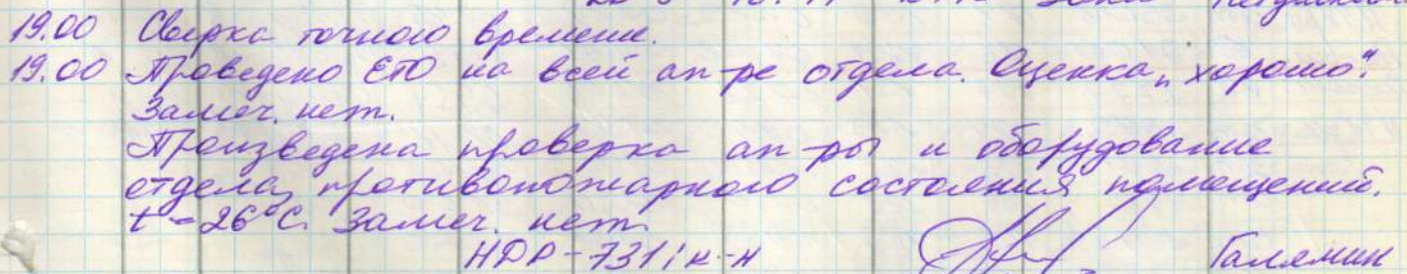 19.00 Сверка точного времени.
19.00 Проведено ЕТО на всей ап-ре отдела. Оценка „хорошо".
Замеч. нет.
Произведена проверка ап-ры и оборудование
отдела, противопожарного состояния помещений.
t - 26°C. Замеч. нет.
НДР-731; к-н Галямин